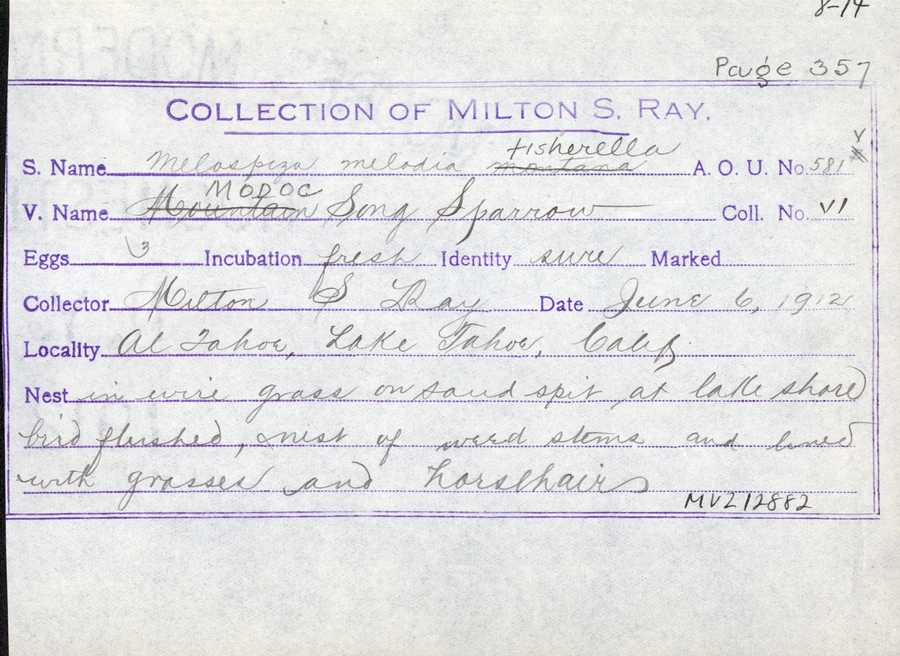 8-14
Page 357
COLLECTION OF MILTON S. RAY.
fisherella
S. Name Melospiza melodia montana A. O. U. No. 581
MODOC
V. Name Mountain Song Sparrow Coll. No. VI
Eggs 3 Incubation fresh Identity sure Marked
Collector Milton S Ray Date June 6, 1912
Locality Al Tahoe, Lake Tahoe, Calif.
Nest in wire grass on sand spit at lake shore
bird flushed, nest of weed stems and lined
with grasses and horsehair
MVZ 12882